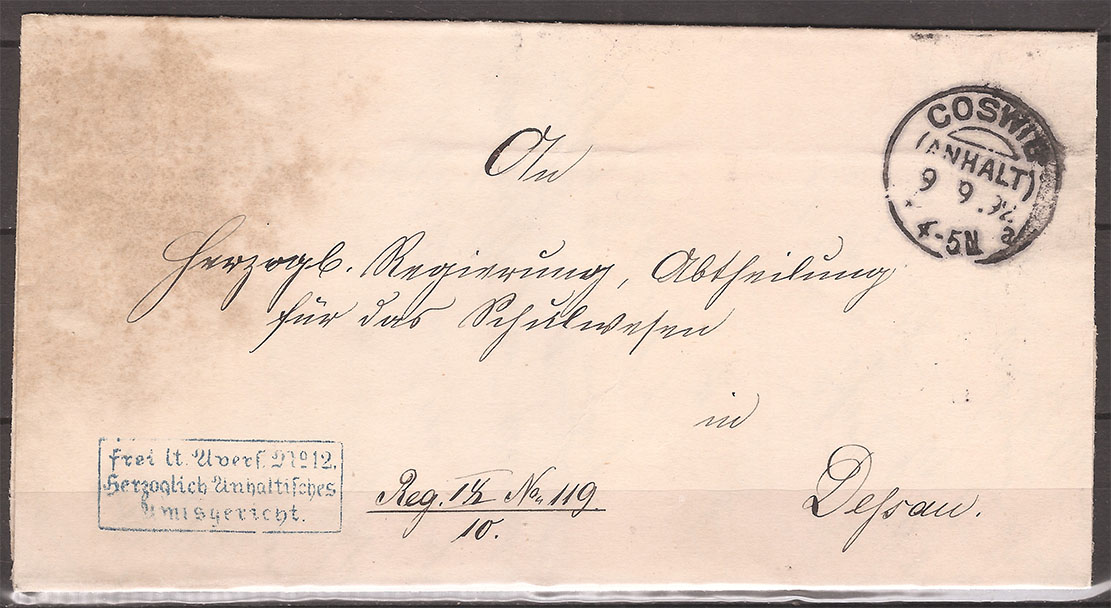 COSWIG
(ANHALT)
9 9.92
4-5N a
An
Herzogl. Regierung, Abtheilung
für das Schulwesen
in
Dessau.
frei lt. Avers. No 12.
Herzoglich Anhaltisches
Amtsgericht.
Reg. No 119.
10.